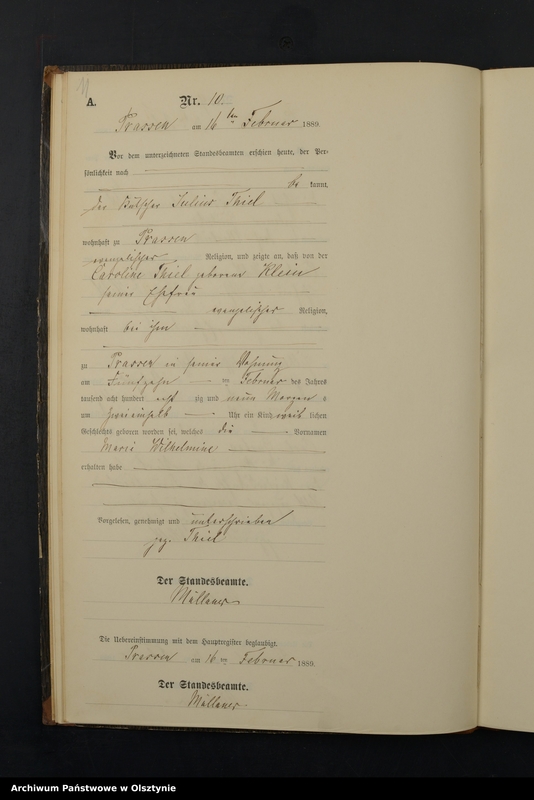 11
A.
Nr. 10.
Prassen am 16ten Februar 1889.
Vor dem unterzeichneten Standesbeamten erschien heute, der Per-
sönlichkeit nach
be kannt,
der Julius Thiel
wohnhaft zu Prassen
evangelischer Religion, und zeigte an, daß von der
Caroline Thiel geborene Klein
seiner Ehefrau
evangelischer Religion,
wohnhaft bei ihm
zu Prassen in seiner Wohnung
am Fünfzehn ten Februar des Jahres
tausend acht hundert acht zig und neun Morgen s
um zweieinhalb Uhr ein Kind weib lichen
Geschlechts geboren worden sei, welches die Vornamen
Marie Wilhelmine
erhalten habe
Vorgelesen, genehmigt und unterschrieben
gez. Thiel
Der Standesbeamte.
Die Uebereinstimmung mit dem Hauptregister beglaubigt.
Prassen am 16ten Februar 1889.
Der Standesbeamte.
Archiwum Państwowe w Olsztynie